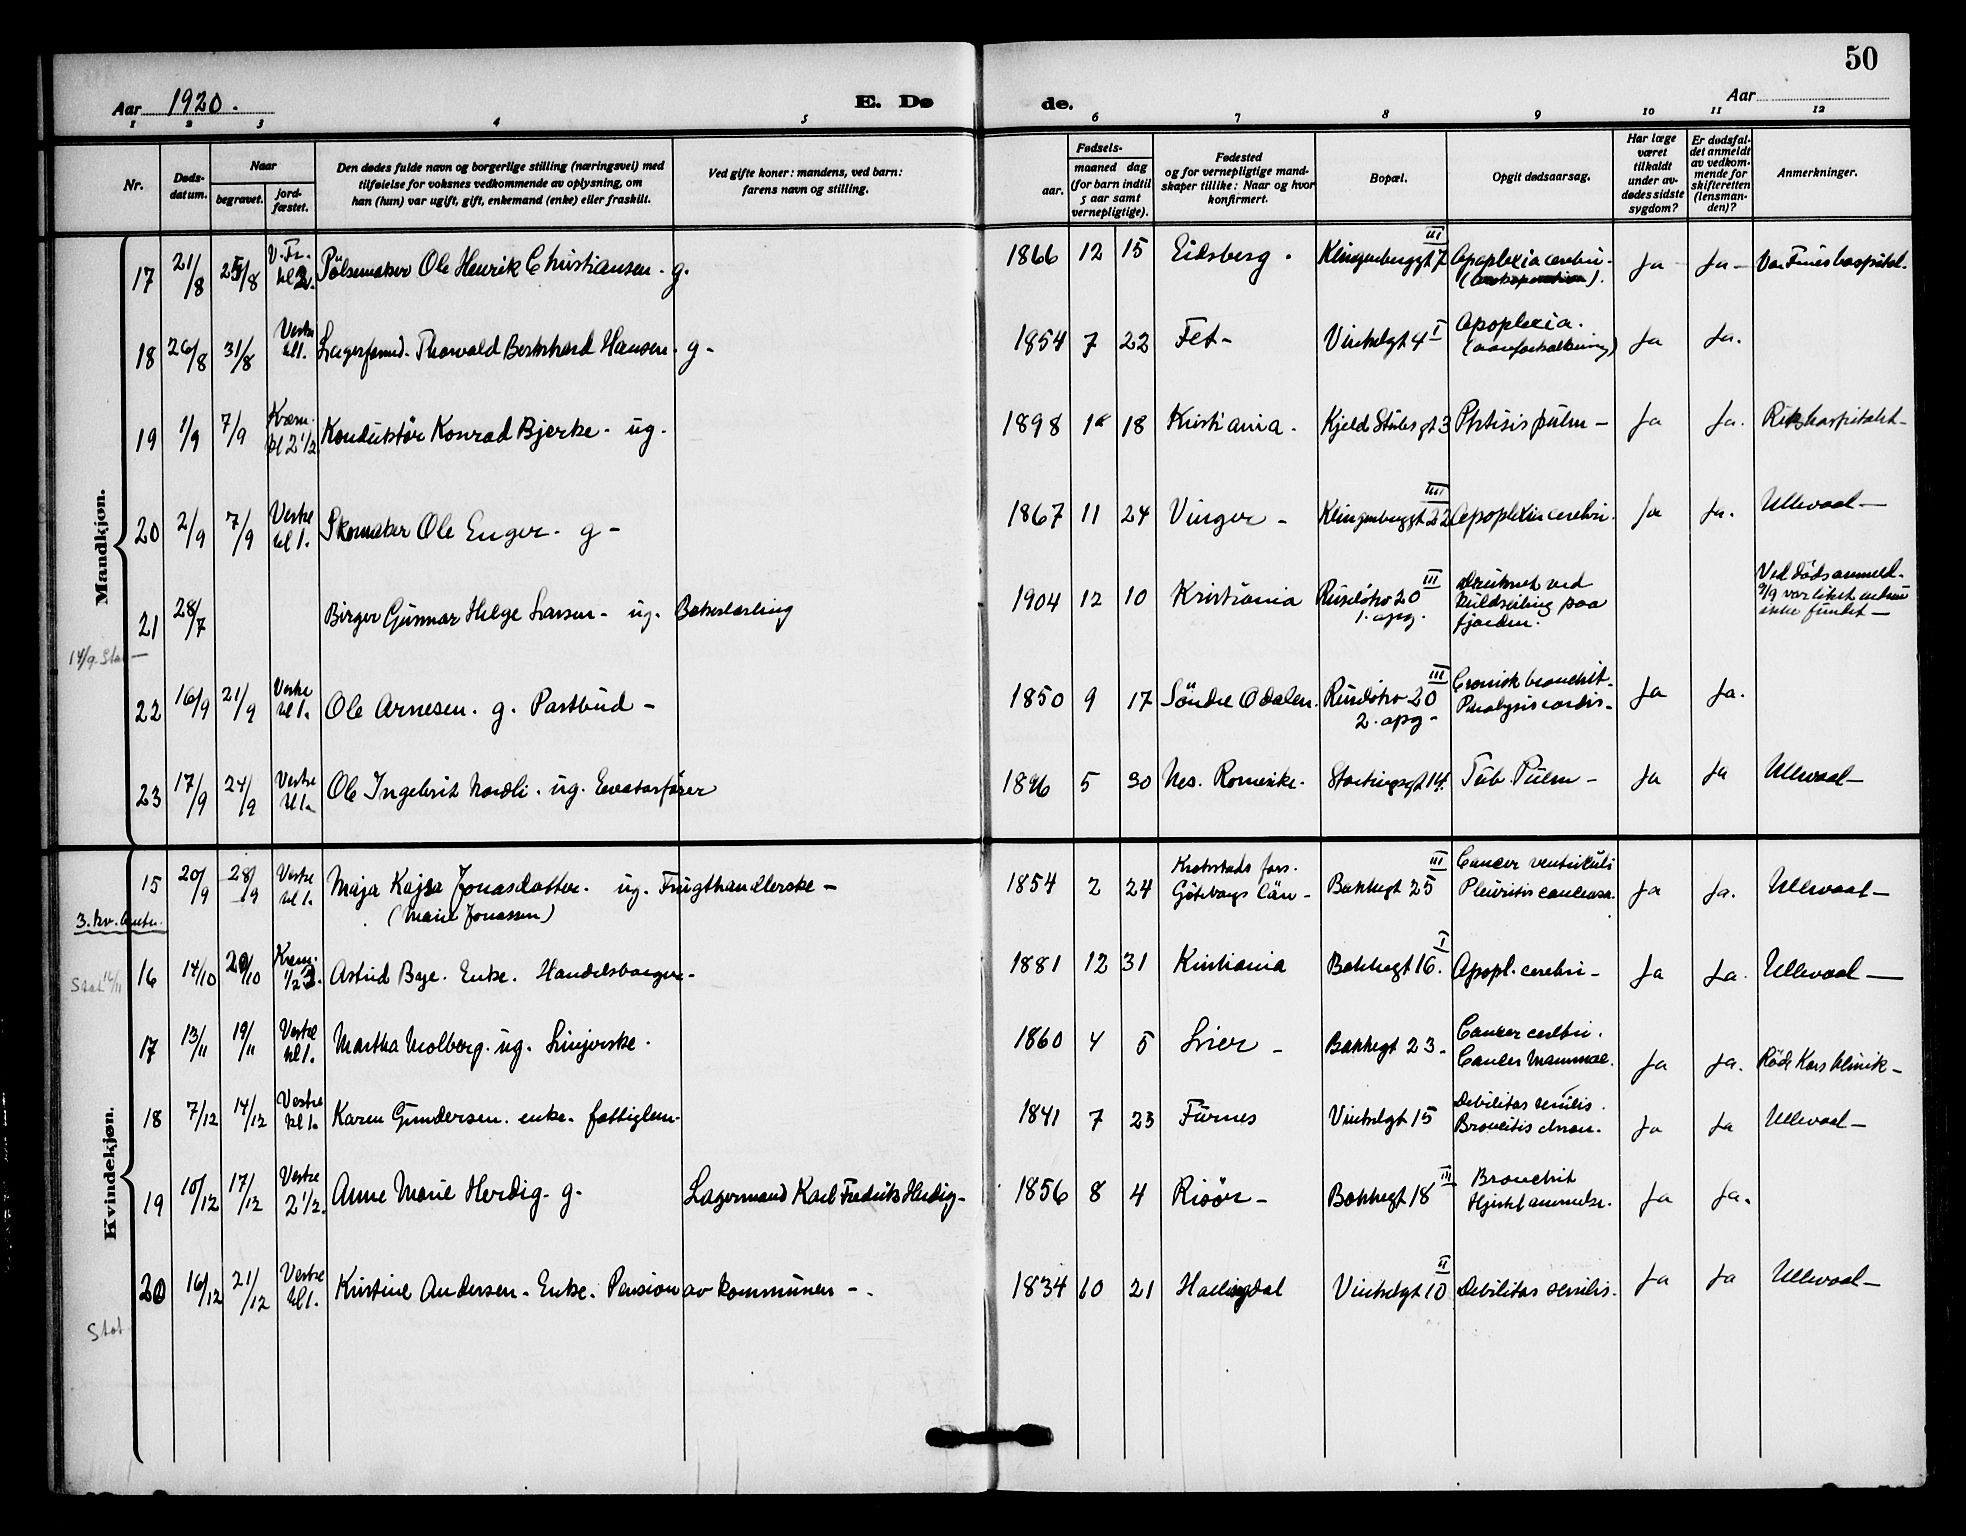 50
Aar 1920.
E. Dø
de.
Aar
1 2 3 4 5 6 7 8 9 10 11 12
Nr.
Døds-
datum.
Naar
begravet.
jord-
fæstet.
Den dødes fulde navn og borgerlige stilling (næringsvei) med
tilføielse for voksnes vedkommende av oplysning, om
han (hun) var ugift, gift, enkemand (enke) eller fraskilt.
Ved gifte koner: mandens, ved barn:
farens navn og stilling.
Fødsels-
aar.
maaned dag
(for barn indtil
5 aar samt
vernepligtige).
Fødested
og for vernepligtige mand-
skaper tillike: Naar og hvor
konfirmert.
Bopæl.
Opgit dødsaarsag.
Har læge
været
tilkaldt
under av-
dødes sidste
sygdom?
Er dødsfal-
det anmeldt
av vedkom-
mende for
skifteretten
(lensman-
den)?
Anmerkninger.
Mandkjøn.
17 21/8 25/8 V. Fr. kl 2. Pølsemaker Ole Henrik Christiansen. g. 1866 12 15 Eidsberg. Klingenberggt 7 III Apoplexia cerebri. Ja Ja Vor Frues hospital.
18 26/8 31/8 Vestre kl 1. Lagerformd. Thorvald Bernhard Hansen. g 1854 7 22 Fet Vinkelgt 4 I Apoplexia.
(aareforkalkning) Ja Ja.
19 1/9 7/9 Krem. kl 2 1/2 Konduktör Konrad Bjerke. ug. 1898 18 Kristiania. Kjeld Stubs gt 3 Phtisis pulm Ja Ja. Rikshospitalet
20 2/9 7/9 Vestre kl 1. Skomaker Ole Enger. g 1867 11 24 Vinger Klingenberggt 22 III Apoplexia cerebri. Ja Ja. Ullevaal
21 28/7 Birger Gunnar Helge Larsen. ug. Bakerlærling 1904 12 10 Kristiania Ruseløkv 20 III
1. opg. Druknet ved
kuldseiling paa
fjorden. Ved dødsanmeld.
9/9 var liket endnu
ikke fundet
14/9. Stat
22 16/9 21/9 Vestre kl 1. Ole Arnesen. g. Postbud 1850 9 17 Söndre Odalen. Ruseløkv 20 III
2. opg Cronisk bronchit.
Paralysis cordis. Ja Ja.
23 17/9 24/9 Vestre kl 1. Ole Ingebrit Nordli. ug. Elevatorfører 1896 5 30 Nes. Romerike. Stortingsgt 14. Tub. Pulm Ja Ja Ullevaal
Kvindekjøn.
15 20/9 28/9 Vestre kl 1. Maja Kajsa Jonasdotter. ug. Frugthandlerske
(Marie Jonassen) 1854 2 24 Krokstads fors.
Göteborgs Län Bakkegt 25 III Cancer ventrikuli
Pleuritis cancrosa. Ja Ja. Ullevaal
3. kv.
16 14/10 20/10 Krem. 1/2 Astrid Bye. Enke. Handelsborger. 1881 12 31 Kristiania Bakkegt 16. I Apopl. cerebri Ja Ja. Ullevaal
Stat 14/11
17 13/11 19/11 Vestre kl 1. Martha Molberg. ug. Linjerske. 1860 4 5 Lier Bakkegt 23. Cancer cerebri.
Cancer Mammae. Ja Ja. Røde Kors klinik
18 7/12 14/12 Vestre kl 1. Karen Gundersen. enke. fattiglem 1841 7 23 Furnes Vinkelgt 15 Debilitas senilis.
Broncitis chron. Ja Ja Ullevaal
19 10/12 17/12 Vestre 2 1/2. Anne Marie Herdig. g. Lagermand Karl Fredrik Herdig 1856 8 4 Risør Bakkegt 18 III Bronchit
Hjertelammelse. Ja Ja.
20 16/12 21/12 Vestre kl 1. Kristine Andersen. Enke. Pension av kommunen 1834 10 21 Hallingdal Vinkelgt 10 II Debilitas senilis. Ja Ja Ullevaal
Stat